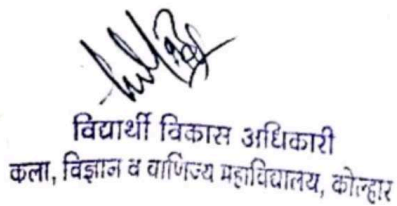 विद्यार्थी विकास अधिकारी
कला, विज्ञान व वाणिज्य महाविद्यालय, कोल्हार